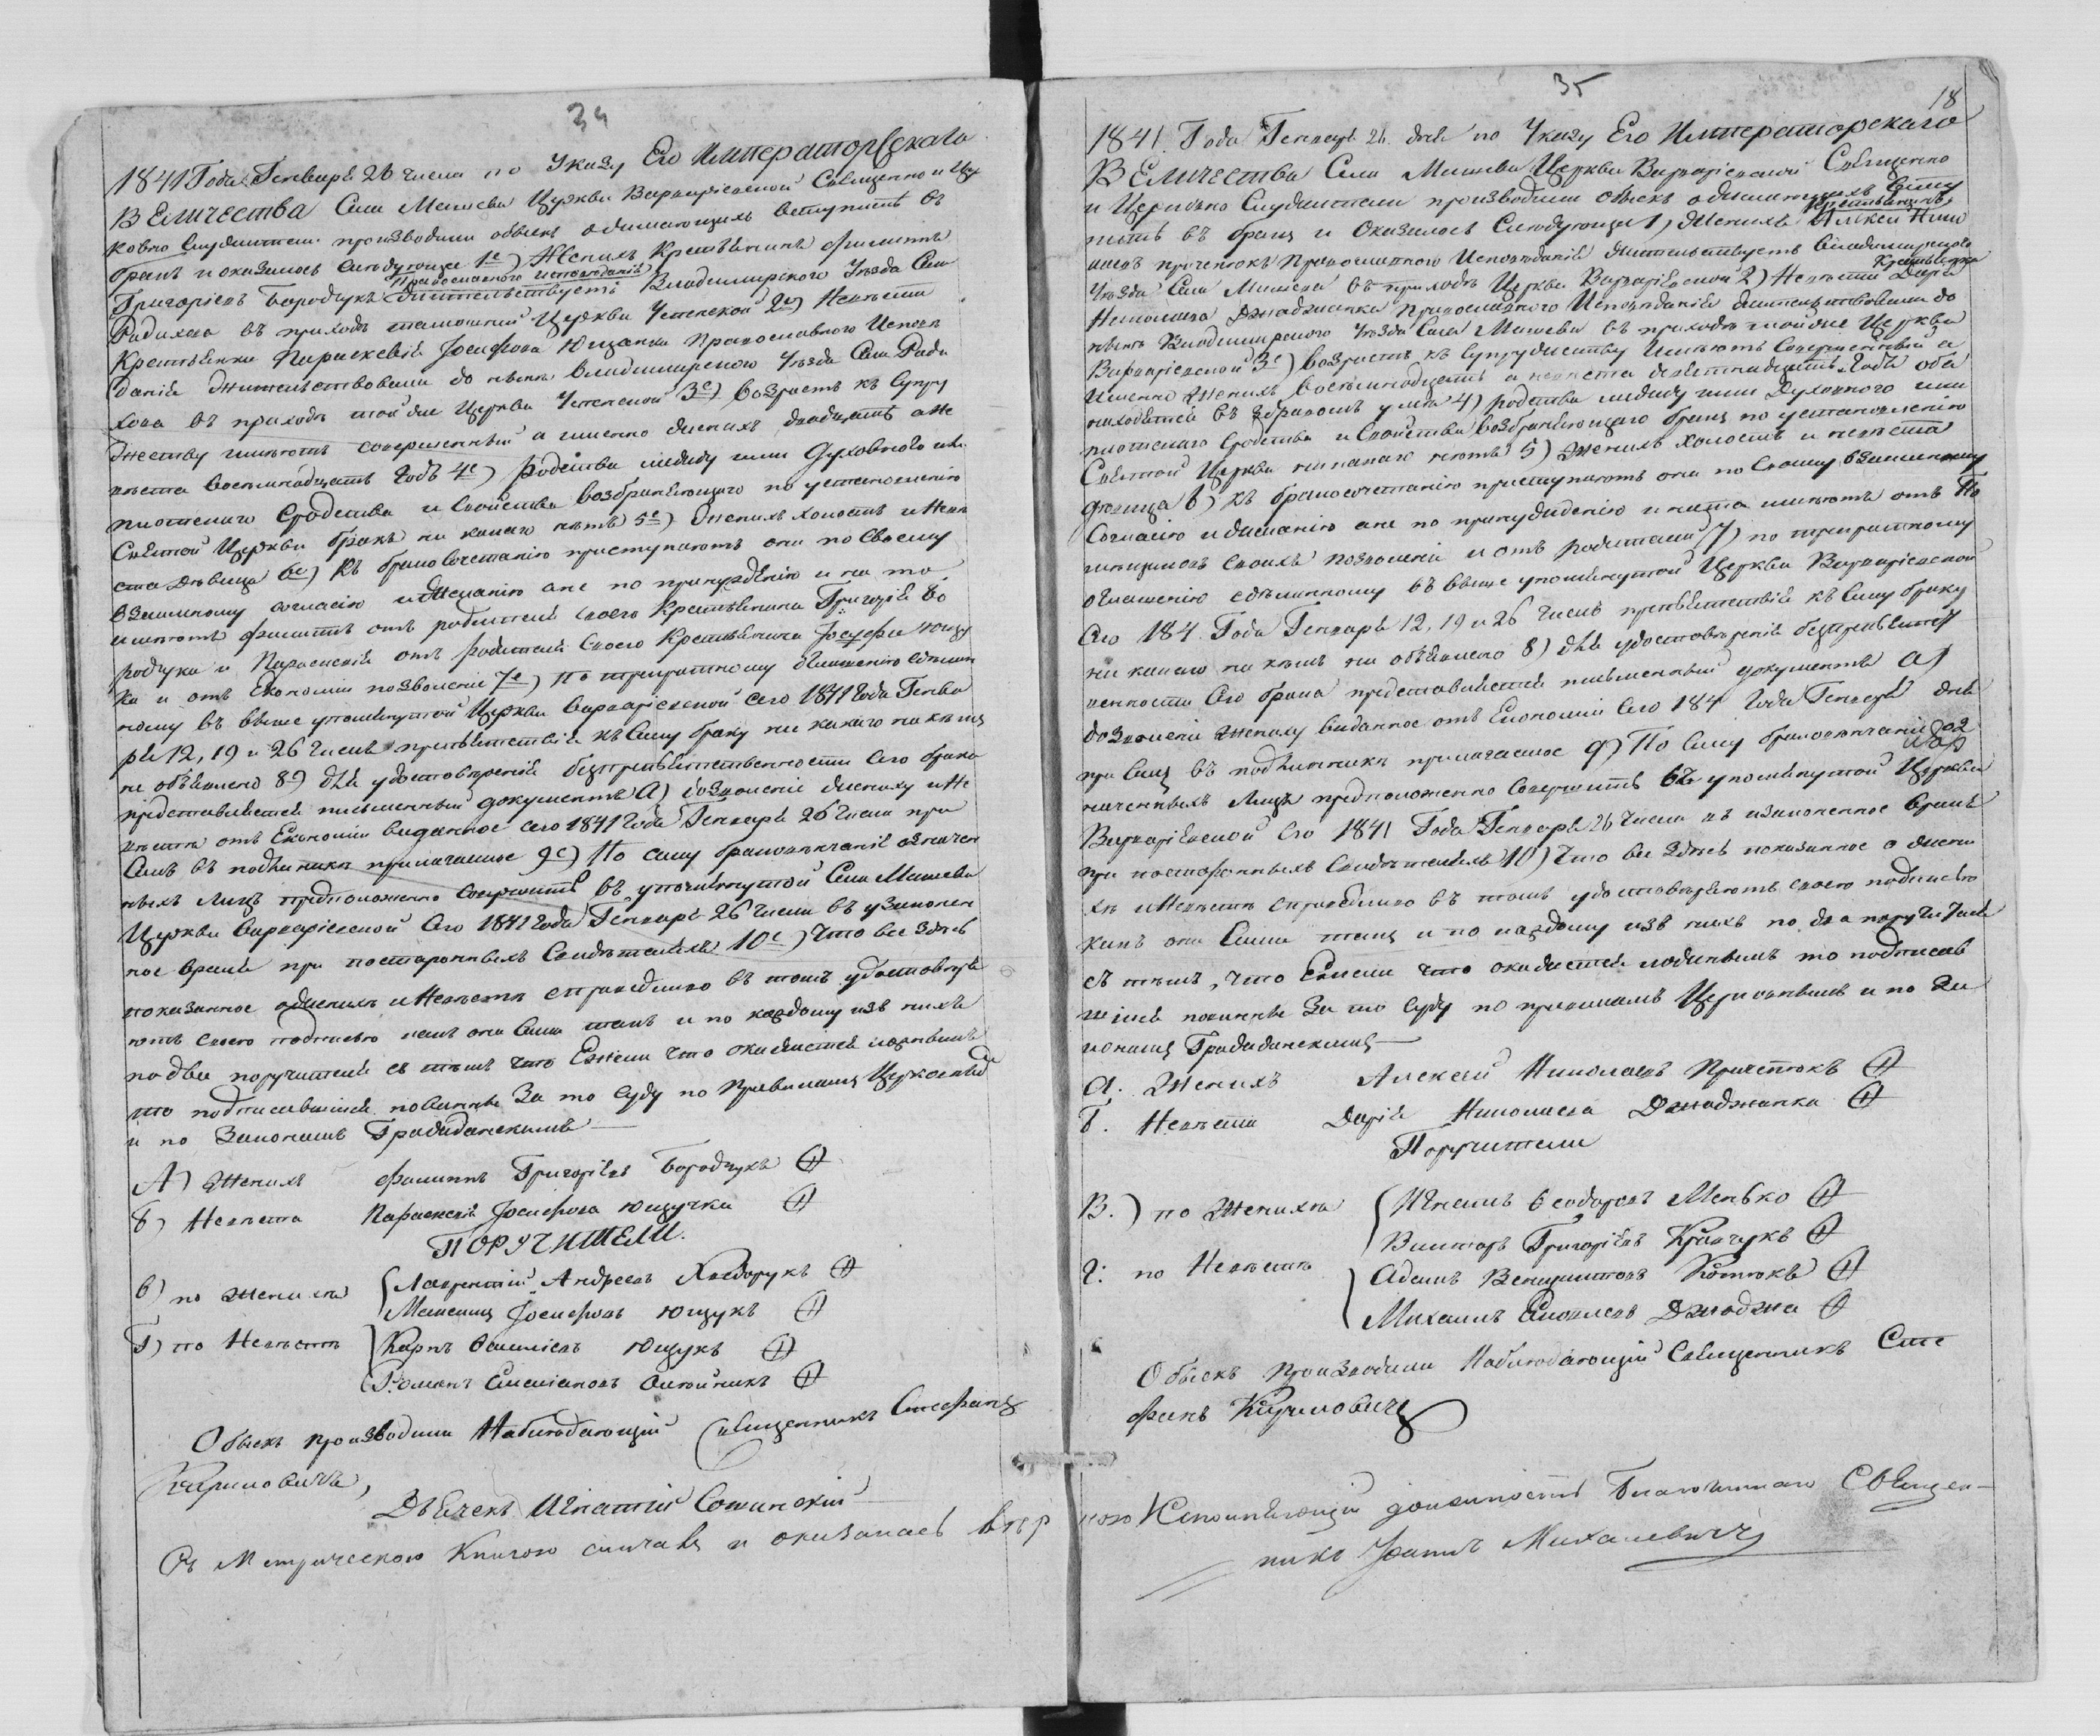 34
1841 Года Генваря 26 числа по Указу Его Императорскаго
Величества Села Машева Церкви Варваріевской Священно и Цер
ковно служители производили обыскъ о желающихъ вступить въ
бракъ и оказалось слѣдующее 1е) Женихъ Крестьянинъ Филиппъ
Православнаго исповѣданія
Григоріевъ Бородчукъ жительствуетъ Владимирского Уѣзда Села
Радихова въ приходѣ тамошней Церкви Успенской 2е) Невѣста
Крестьянка Параскевія Іосифова Ющанка Православного Исповѣ
данія жительствовала до нынѣ Владимирского Уѣзда Села Ради
хова въ приходѣ той же Церкви Успенской 3е) Возрастъ къ супру
жеству имѣютъ совершенный а именно женихъ двадцать а не
вѣста восемнадцать годъ 4е) родства между ими духовного или
плотского сродства и свойства возбраняющаго по установленію
Святой Церкви бракъ ни какого нѣтъ 5е) Женихъ холостъ и невѣ
ста дѣвица 6е) Къ бракосочетанію приступаютъ они по своему
взаимному согласію и желанію а не по принужденію и на то
имѣютъ Филиппъ отъ родителей своего Крестьянина Григорія Бо
родчука и Параскевія отъ родителей своего Крестьянина Іосифа Ющу
ка и отъ Економіи позволеніе 7е) По троекратному оглашенію сдѣлан
ному въ выше упомянутой Церкви Варваріевской сего 1841 Года Генва
ря 12, 19 и 26 числъ препятствія къ сему браку ни какого никѣмъ
не объявлено 8е) для удостовѣренія безпрепятственности сего брака
представляется письменный документъ А) дозволеніе жениху и не
вѣстѣ отъ Економіи виданное сего 1841 Года Генваря 26 числа при
семъ въ подлинникѣ прилагаемое 9е) По сему браковѣнчаніе означен
ныхъ лицъ предположено совершить въ упомянутой Села Машева
Церкви Варваріевской сего 1841 Года Генваря 26 числа въ узаконен
ное время при постороннихъ свидѣтеляхъ 10е) Что все здѣсь
показанное о женихѣ и невѣстѣ справедливо въ томъ удостовѣря
ютъ своею подписью какъ они сами такъ и по каждому изъ нихъ
по два поручителя съ тѣмъ что Ежели что окажется ложнымъ
то подписавшіеся повинны за то суду по Правиламъ Церковнымъ
и по Законамъ Гражданскимъ
А) Женихъ Филиппъ Григоріевъ Бородчукъ
Б) Невѣста Параскевія Іосифова Ющучка
ПОРУЧИТЕЛИ.
В) по женихѣ Лаврентій Андреевъ Хведорукъ
Іосифовъ Ющукъ
Г) по Невѣстѣ Карпъ Ющукъ
Романъ Олійникъ
Обыскъ производили Наблюдающій Священникъ Стефанъ
Кириловичъ,
Дьячекъ Игнатій
Съ Метрическою Книгою сличавъ и оказалась вѣр
35
18
1841 Года Генваря 26 дня по Указу Его Императорскаго
Величества Села Машева Церкви Варваріевской Священно
и Церковно Служители производили обыскъ о желающихъ всту
пить въ бракъ и оказалось слѣдующее 1) Женихъ Крестьянинъ Алексѣй Нико
лаевъ Православного Исповѣданія жительствуетъ Владимирского
Уѣзда Села Машева въ приходѣ Церкви Варваріевской 2) Невѣста Крестьянка Дарія
Николаева Православного Исповѣданія жительствовала до
нынѣ Владимирского Уѣзда Села Машева въ приходѣ той же Церкви
Варваріевской 3е) Возрастъ къ супружеству имѣютъ совершенный а
именно женихъ восемнадцать а невѣста девятнадцать годъ оба
находятся въ здравомъ умѣ 4) родства между ими духовного или
плотского сродства и свойства возбраняющаго бракъ по установленію
Святой Церкви никакого нѣтъ 5) Женихъ холостъ и невѣста
дѣвица 6) къ бракосочетанію приступаютъ они по своему взаимному
согласію и желанію а не по принужденію и на то имѣютъ отъ По
мѣщиковъ своихъ позволеніе и отъ родителей 7) по троекратному
оглашенію сдѣланному въ выше упомянутой Церкви Варваріевской
сего 184 Года Генваря 12, 19 и 26 числъ препятствія къ сему браку
ни какого никѣмъ не объявлено 8) для удостовѣренія безпрепятст
венности сего брака представляется письменный документъ а)
дозволеніе жениху виданное отъ Економіи сего 184 Года Генваря дня
при семъ въ подлинникѣ прилагаемое 9) По сему браковѣнчаніе оз
наченныхъ лицъ предположено совершить въ упомянутой Церкви
Варваріевской сего 1841 Года Генваря 26 числа въ узаконенное время
при постороннихъ свидѣтеляхъ 10) Что все здѣсь показанное о жени
хѣ и невѣстѣ справедливо въ томъ удостовѣряютъ своею подписью
какъ они сами такъ и по каждому изъ нихъ по два поручителя
съ тѣмъ, что Ежели что окажется ложнымъ то подписав
шіеся повинны за то суду по правиламъ Церковнымъ и по За
конамъ Гражданскимъ
А. Женихъ Алексѣй Николаевъ
Б. Невѣста Дарія Николаева
Поручители
В.) по Женихѣ Феодоровъ Менько
Викторъ Григоріевъ Кравчукъ
Г. по Невѣстѣ Адамъ
Михаилъ
Обыскъ производили Наблюдающій Священникъ Сте
фанъ Кириловичъ
ною Исполняющій должность Благочиннаго Священ-
никъ Іоаннъ Михалевичъ